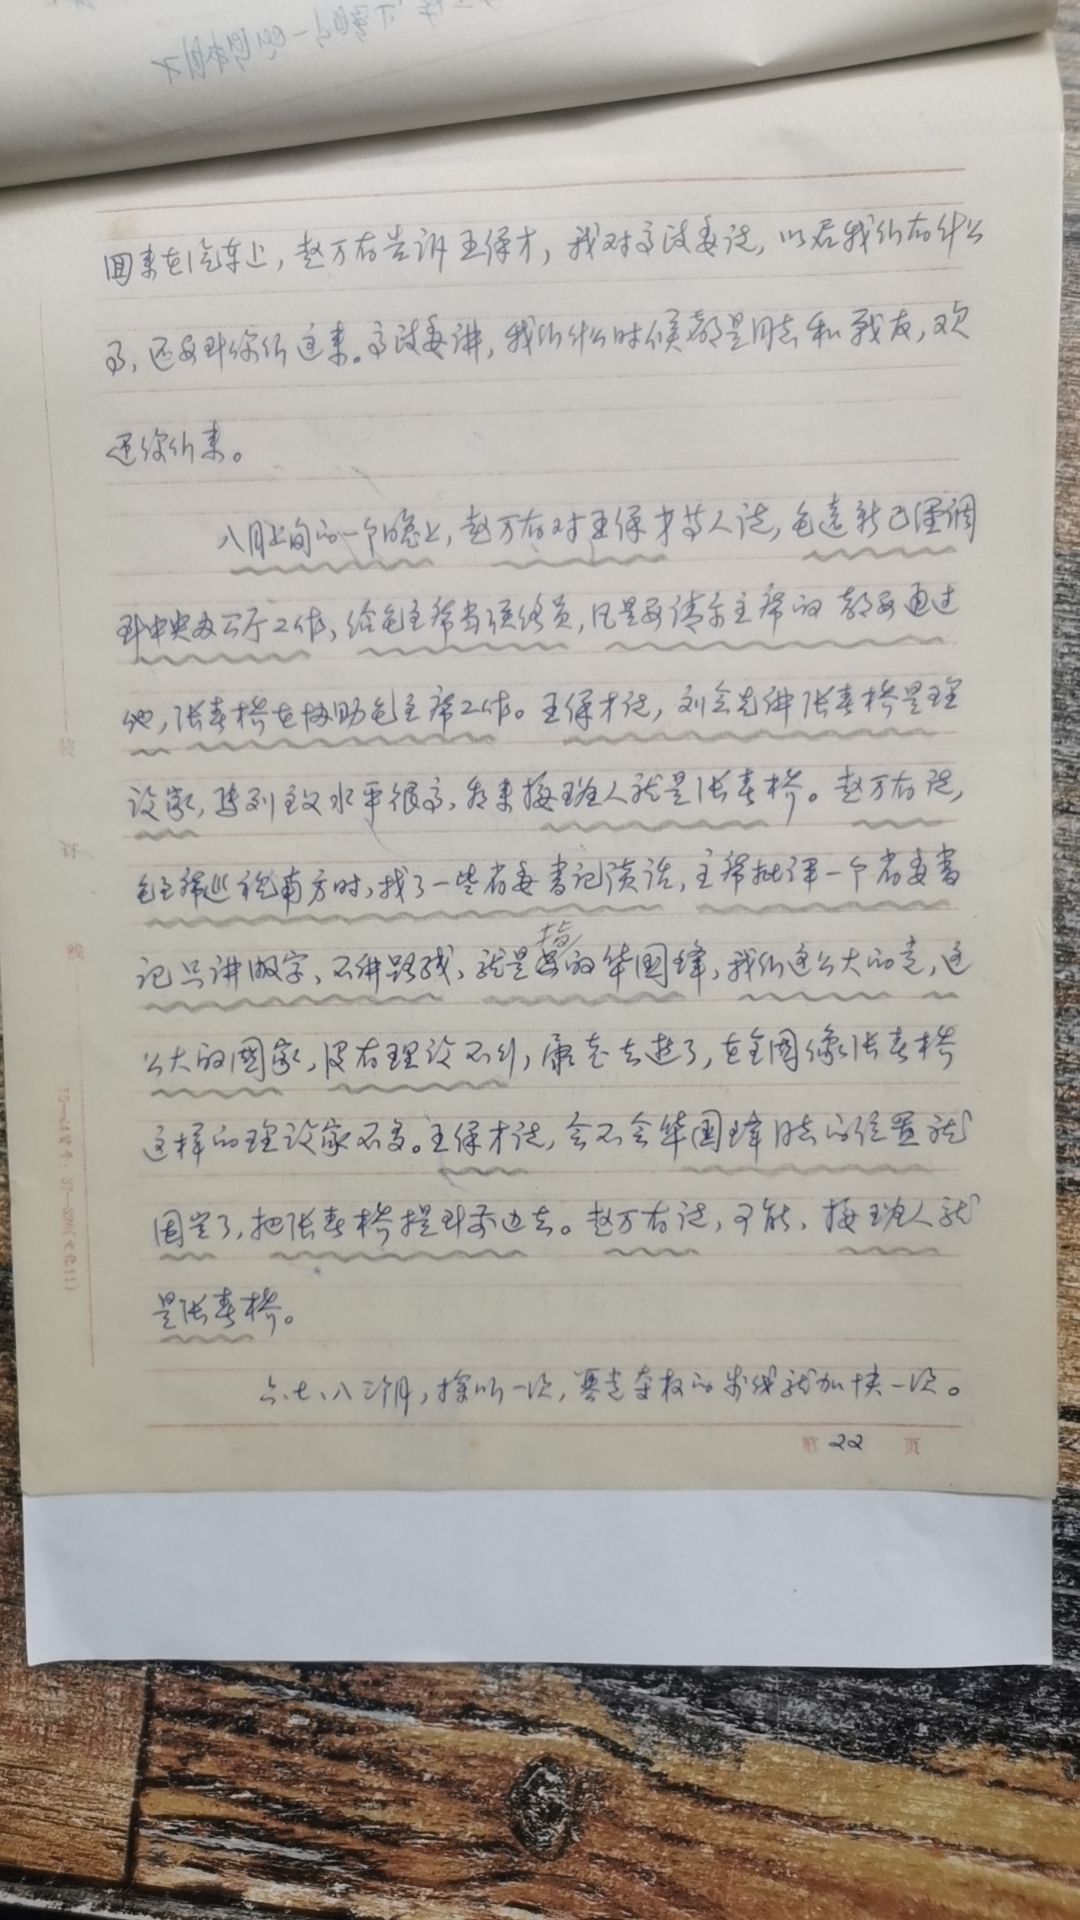 回来在汽车上，赵万有告诉王保才，我对高政委说，以后我们有什么
事，还要到你们这来。高政委讲，我们什么时候都是同志和战友，欢
迎你们来。
八月上旬的一个晚上，赵万有对王保才等人说，毛远新已经调
到中央办公厅工作，给毛主席当联络员，凡是要请示主席的都要通过
他，张春桥在协助毛主席工作。王保才说，刘会先讲张春桥是理
论家，马列主义水平很高，将来接班人就是张春桥。赵万有说，
毛主席巡视南方时，找了一些省委书记谈话，主席批评一个省委书
记只讲收字，不讲路线，就是指的华国锋，我们这么大的党，这
么大的国家，没有理论不行，康老去逝了，在全国像张春桥
这样的理论家不多。王保才说，会不会华国锋同志的位置就
固定了，把张春桥提到前边去。赵万有说，可能，接班人就
是张春桥。
六、七、八三个月，探听一次，篡党夺权的步伐就加快一次。
第 22 页
装
订
线